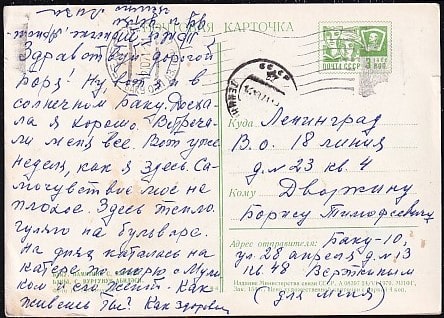 ПОЧТОВАЯ КАРТОЧКА
Здравствуй дорогой
Боря! Ну, вот я и в
солнечном Баку. Доеха-
ла я хорошо. Встреча-
ли меня все. Вот уже
неделя, как я здесь. Са-
мочувствие мое не
плохое. Здесь тепло.
Гуляю на бульваре.
На днях катались на
катере по морю с
ком и его женой. Как
живешь ты? Как здоровье
СССР
ПОЧТА СССР
3 коп.
Куда Ленинград
В.О. 18 линия
д.м 23 кв. 4
Кому Дворжину
Борису Тимофеевичу
Адрес отправителя: Баку-10,
ул 28 апреля д.м 13
кв. 48 Вертжиким
(для меня)
Издание Министерства связи СССР.